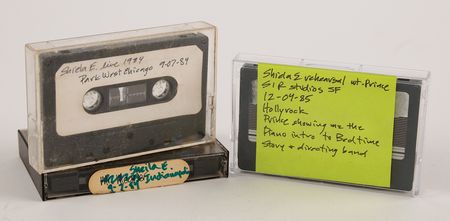 Shiela E. live 1984
Park West Chicago 9-07-84
Sheila E.
Indianapolis
9-2-84
Shiela E rehearsal wt. Prince
SIR studios SF
12-04-85
Hollyrock
Prince showing me the
Piano intro to Bedtime
Story & directing band